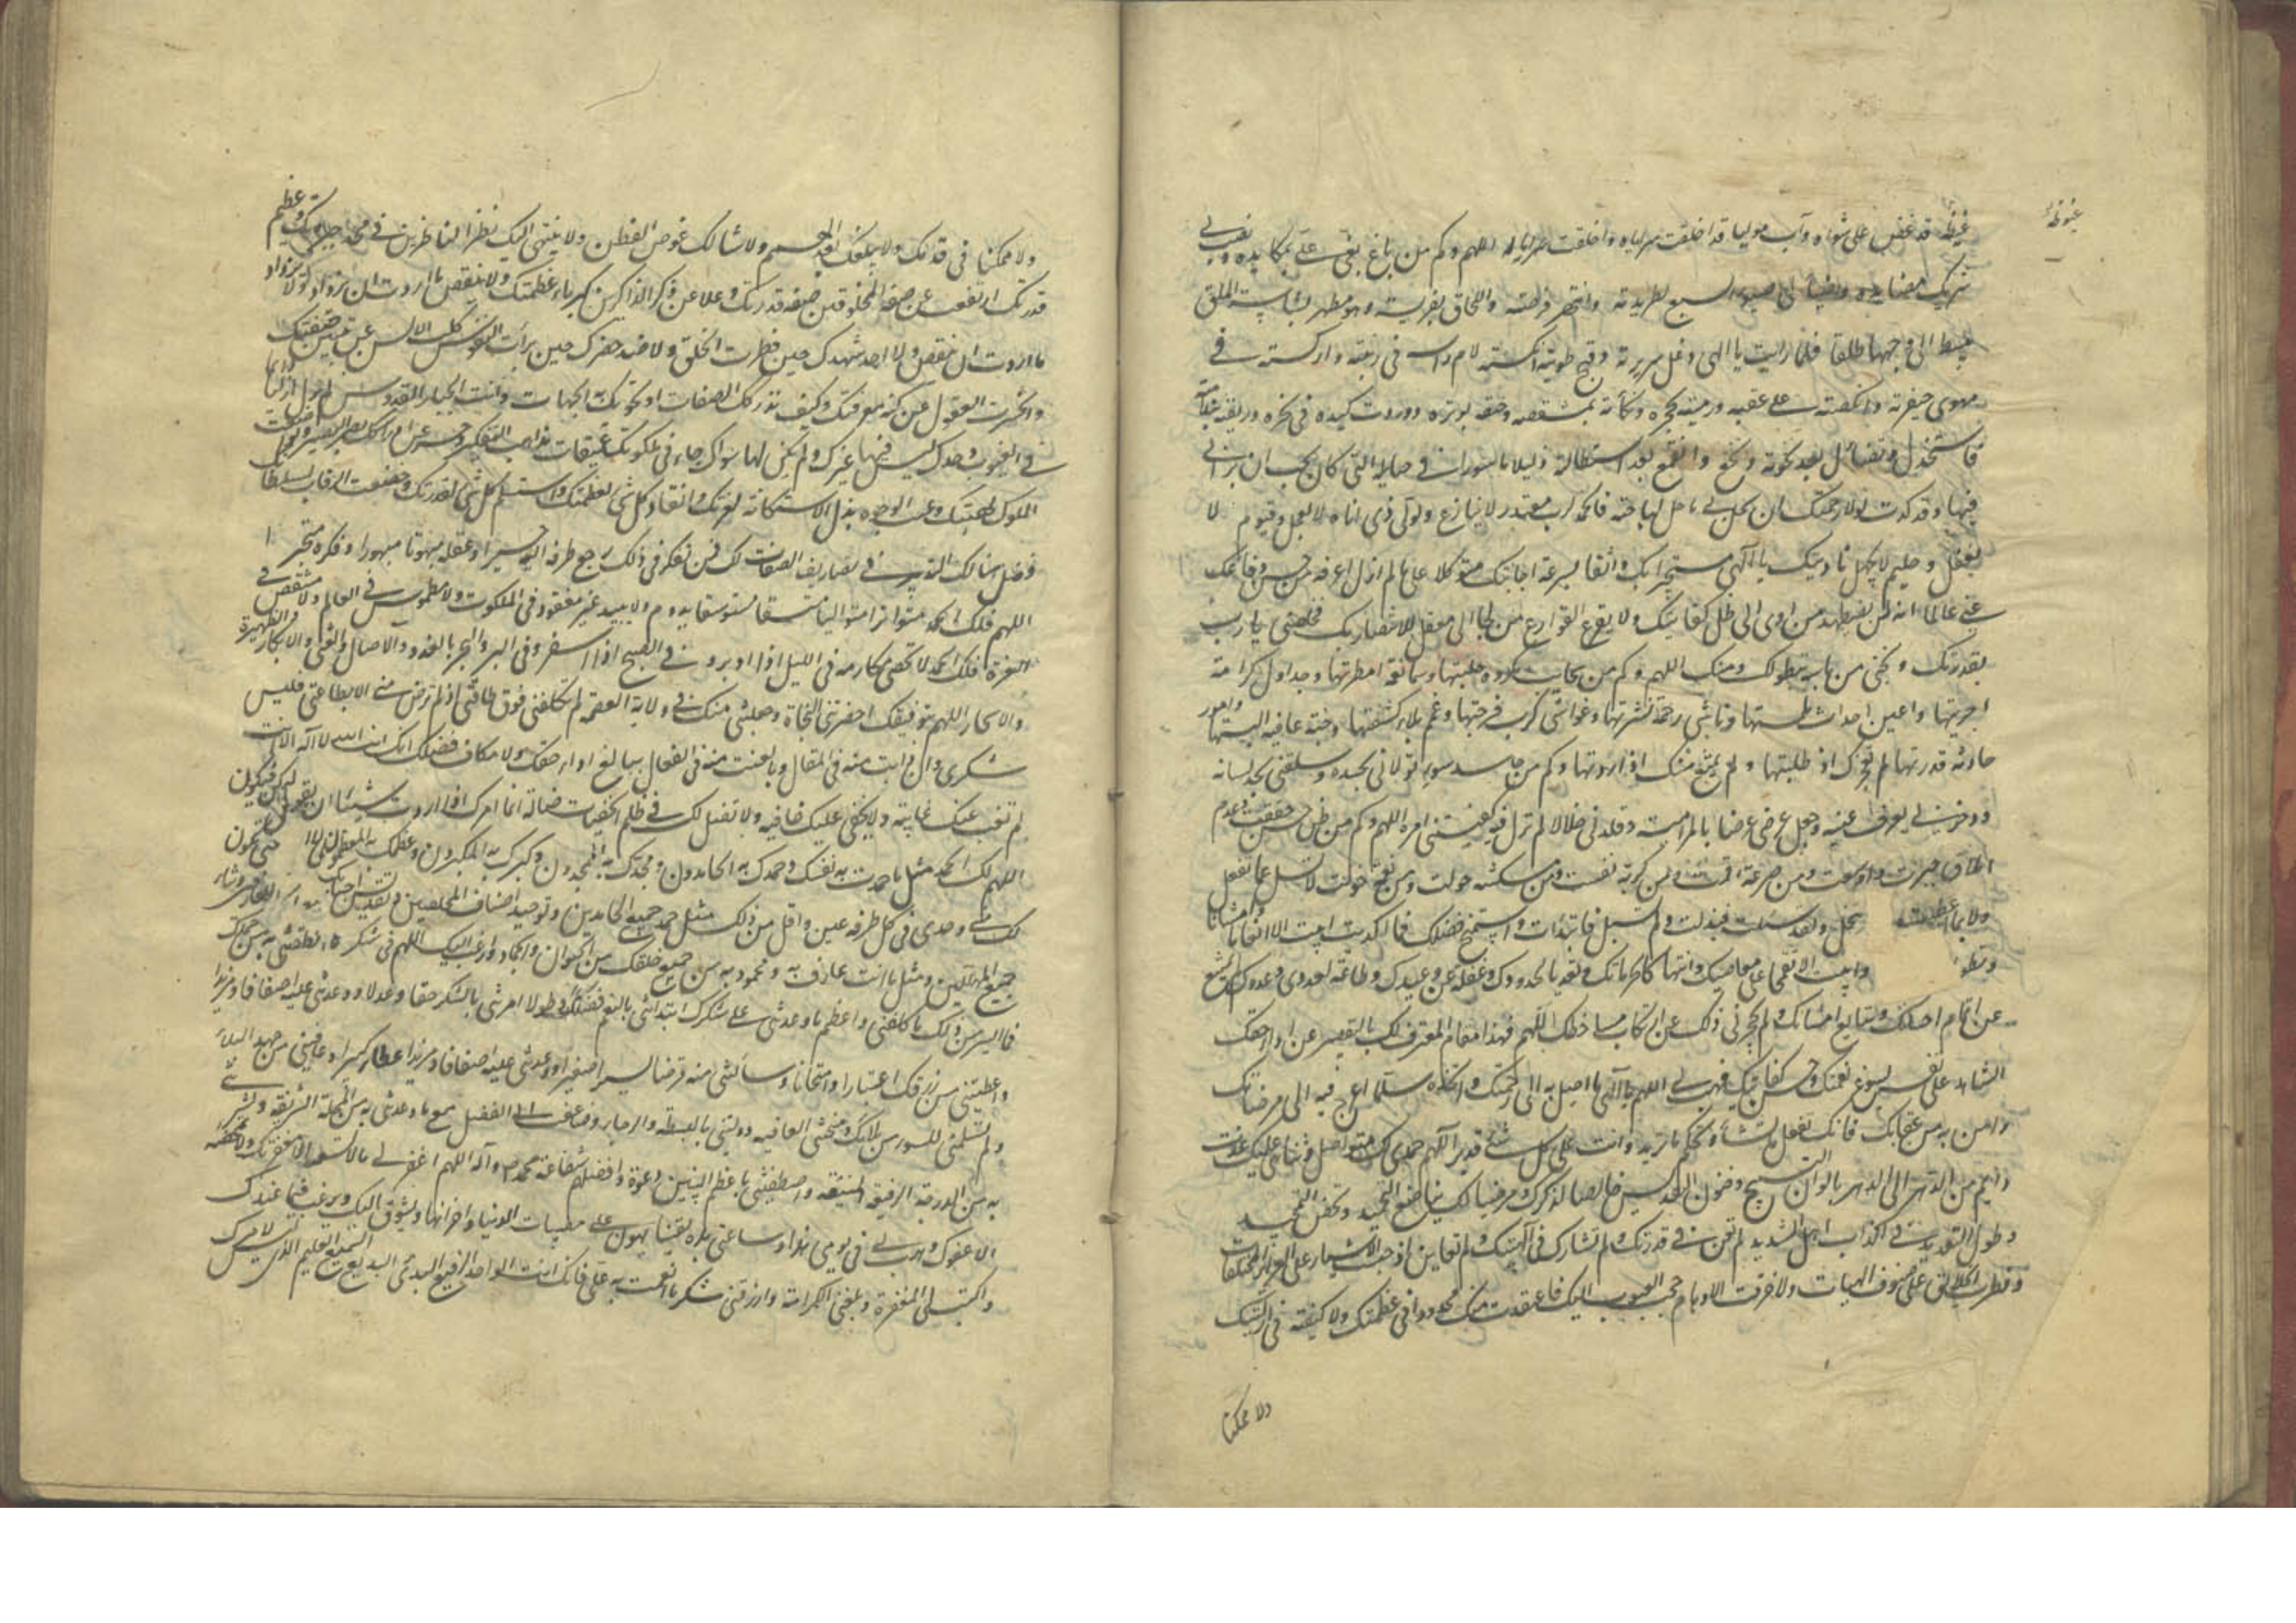 غیظه قد عض علی شواه وآب مولیا قد اخلفت سرایاه واخلفت سرایاه اللهم وکم من باغ بغی علی بمکایده ونصب لی
شرک مصایده واضبأ الی ضبوء السبع لطریدته وانتهز فرصته واللحاق بفریسته وهو مظهر بشاشة الملق
یبسط الی وجها طلقا فلما رایت یا الهی دغل سریرته وقبح طویته انکسته لام راسه فی زبیته وارکسته فی
مهوی حفرته وانکصته علی عقبه ورمیته بحجره ونکأته بمشقصه وخنقه بوتره ورددت کیده فی نحره وربقته بندامته
فاستخذل وتضائل بعد نخوته وبخع وانقمع بعد استطالته ذلیلا ماسورا فی حبایله التی کان یحب ان یرانی
فیها وقد کدت لولا رحمتک ان یحل بی ما حل بساحته فالحمد لرب مقتدر لا ینازع ولولی ذی اناة لا یعجل وقیوم لا
یغفل وحلیم لا یجهل نادیتک یا الهی مستجیرا بک واثقا بسرعة اجابتک متوکلا علی ما لم ازل اعرفه من حسن دفاعک
عنی عالما انه لن یضطهد من اوی الی ظل کفایتک ولا یقرع القوارع من لجا الی معقل الانتصار بک فخلصتنی یا رب
بقدرتک ونجیتنی من باسه بتطولک ومنک اللهم وکم من سحایب مکروه جلیتها وسماء نعمة امطرتها وجداول کرامة
اجریتها واعین احداث طمستها وناشی رحمة نشرتها وغواشی کرب فرجتها وغمم بلاء کشفتها وجنة عافیة البستها وامور
حادثة قدرتها لم تعجزک اذ طلبتها ولم تمتنع منک اذ اردتها وکم من حاسد سوء تولانی بحسده وسلقنی بحد لسانه
ووخزنی بغرف عینه وجعل عرضی غرضا لمرامیه وقلدنی خلالا لم تزل فیه کفیتنی امره اللهم وکم من ظن حسن حققت وعدم
املاق جبرت واوسعت ومن صرعة اقمت ومن کربة نفست ومن مسکنة حولت ومن نعمة خولت لا تسئل عما تفعل
ولا بما اعطیت تبخل ولقد سئلت فبذلت ولم تسئل فابتدأت واستمیح فضلک فما اکدیت ابیت الا انعاما وامتنانا
وتطو وابیت الا تقحما علی معاصیک وانتهاکا لحرماتک وتعدیا لحدودک وغفلة عن وعیدک وطاعة لعدوی وعدوک لم یمتنع
عن اتمام احسانک وتتابع امتنانک ولم یحجزنی ذلک عن ارتکاب مساخطک اللهم فهذا مقام المعترف لک بالتقصیر عن اداء حقک
الشاهد علی نفسه بسبوغ نعمتک وحسن کفایتک فهب لی اللهم یا الهی ما اصل به الی رحمتک واتخذه سلما اعرج فیه الی مرضاتک
وامن به من عقابک فانک تفعل ما تشاء وتحکم ما ترید وانت علی کل شیء قدیر اللهم حمدی لک متواصل وثنائی علیک
دائم من الدهر الی الدهر بالوان التسبیح وفنون التقدیس خالصا لذکرک ومرضیا لک بناصع التوحید ومحض التحمید
وطول التعدید فی اکذاب اهل التندید لم تعن فی قدرتک ولم تشارک فی الهیتک ولم تعاین اذ حبست الاشیاء علی الغرایز المختلفات
وفطرت الخلائق علی صنوف الهیات ولا خرقت الاوهام حجب الغیوب الیک فاعتقدت منک محدودا فی عظمتک ولا کیفیة فی ازلیتک
ولا ممکنا
ولا ممکنا فی قدمک ولا یبلغک بعد الهمم ولا ینالک غوص الفطن ولا ینتهی الیک نظر الناظرین فی مجد جبروتک وعظیم
قدرتک ارتفعت عن صفة المخلوقین صفة قدرتک وعلا عن ذکر الذاکرین کبریاء عظمتک ولا ینقص ما اردت ان یزداد ولا یزداد
ما اردت ان ینقص ولا احد شهدک حین فطرت الخلق ولا ضد حضرک حین برأت النفوس کلت الالسن عن تبیین صفتک
وانحسرت العقول عن کنه معرفتک وکیف تدرکک الصفات او تحویک الجهات وانت الجبار القدوس لم تزل ازلیا دائما
فی الغیوب وحدک لیس فیها غیرک ولم یکن لها سواک حارت فی ملکوتک عمیقات مذاهب التفکیر وحسر عن ادراکک بصر البصیر وتواضعت
الملوک لهیبتک وعنت الوجوه بذل الاستکانة لعزتک وانقاد کل شیء لعظمتک واستسلم کل شیء لقدرتک وخضعت الرقاب لسلطانک
فضل هنالک التدبیر فی تصاریف الصفات لک فمن تفکر فی ذلک رجع طرفه الیه حسیرا وعقله مبهوتا مبهورا وفکره متحیرا
اللهم فلک الحمد متواترا متوالیا متسقا مستوسقا یدوم ولا یبید غیر مفقود فی الملکوت ولا مطموس فی العالم ولا منتقص فی
العزة فلک الحمد لا تحصی مکارمه فی اللیل اذا ادبر و فی الصبح اذا اسفر وفی البر والبحر بالغدو والاصال والعشی والابکار والظهیرة
والاسحار اللهم بتوفیقک احضرتنی النجاة وجعلتنی منک فی ولایة العصمة لم تکلفنی فوق طاقتی اذ لم ترض منی الا بطاعتی فلیس
شکری وان دابت منه فی المقال وبالغت منه فی الفعال ببالغ اداء حقک ولا مکاف فضلک لانک انت الله لا اله الا انت
لم تغب عنک غایبة ولا تخفی علیک خافیة ولا تضل لک فی ظلم الخفیات ضالة انما امرک اذا اردت شیئا ان تقول له کن فیکون
اللهم لک الحمد مثل ما حمدت به نفسک وحمدک به الحامدون ومجدک به الممجدون وکبرک به المکبرون وعظمک به المعظمون حتی یکون
لک منی وحدی فی کل طرفة عین واقل من ذلک مثل حمد جمیع الحامدین وتوحید اصناف المخلصین وتقدیس احبائک العارفین وثناء
جمیع المهللین ومثل ما انت عارف به ومحمود به من جمیع خلقک من الحیوان والجماد وارغب الیک اللهم فی شکر ما انطقتنی به من حمدک
فما ایسر من ذلک ما کلفتنی واعظم ما وعدتنی علی شکرک ابتدأتنی بالنعم فضلا وطولا وامرتنی بالشکر حقا وعدلا ووعدتنی علیه اضعافا ومزیدا
واعطیتنی من رزقک اعتبارا وامتحانا وسألتنی منه قرضا یسیرا صغیرا ووعدتنی علیه اضعافا ومزیدا عطاء کثیرا وعافیتنی من جهد البلاء
ولم تسلمنی للسوء من بلائک ومنحتنی العافیة وولیتنی بالبسطة والرخاء وضاعفت لی الفضل مع ما وعدتنی به من المحلة الشریفة وبشرتنی
به من الدرجة الرفیعة المنیعة واصطفیتنی باعظم النبیین دعوة وافضلهم شفاعة محمد ص وآله اللهم اغفر لی ما لا یسعه الا مغفرتک ولا یمحقه
الا عفوک وهب لی فی یومی هذا وساعتی هذه یقینا یهون علی مصیبات الدنیا واحزانها ویشوق الیک ویرغب فیما عندک
واکتب لی المغفرة وبلغنی الکرامة وارزقنی شکر ما انعمت به علی فانک انت الواحد الرفیع البدیء البدیع السمیع العلیم الذی لیس لامرک